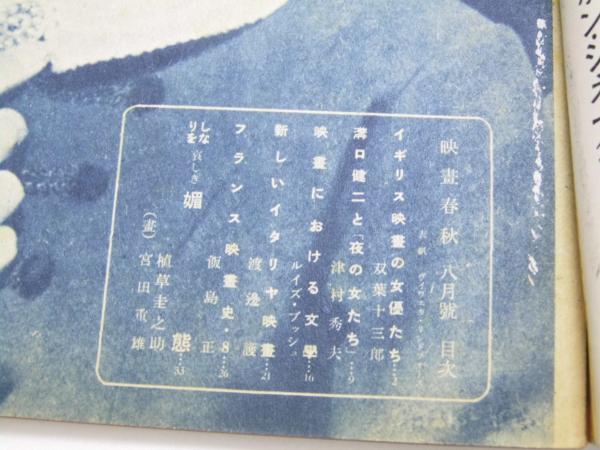 映畫春秋 八月號 目次
イギリス映畫の女優たち…
双葉十三郎
溝口健二と「夜の女たち」…9
津村秀夫
映畫における文學…16
ルイズ・ブッシュ
新しいイタリヤ映畫…21
渡邊護
フランス映畫史・8…26
飯島正
しなりを 哀しき 媚態…33
植草圭之助
(畫) 宮田重雄